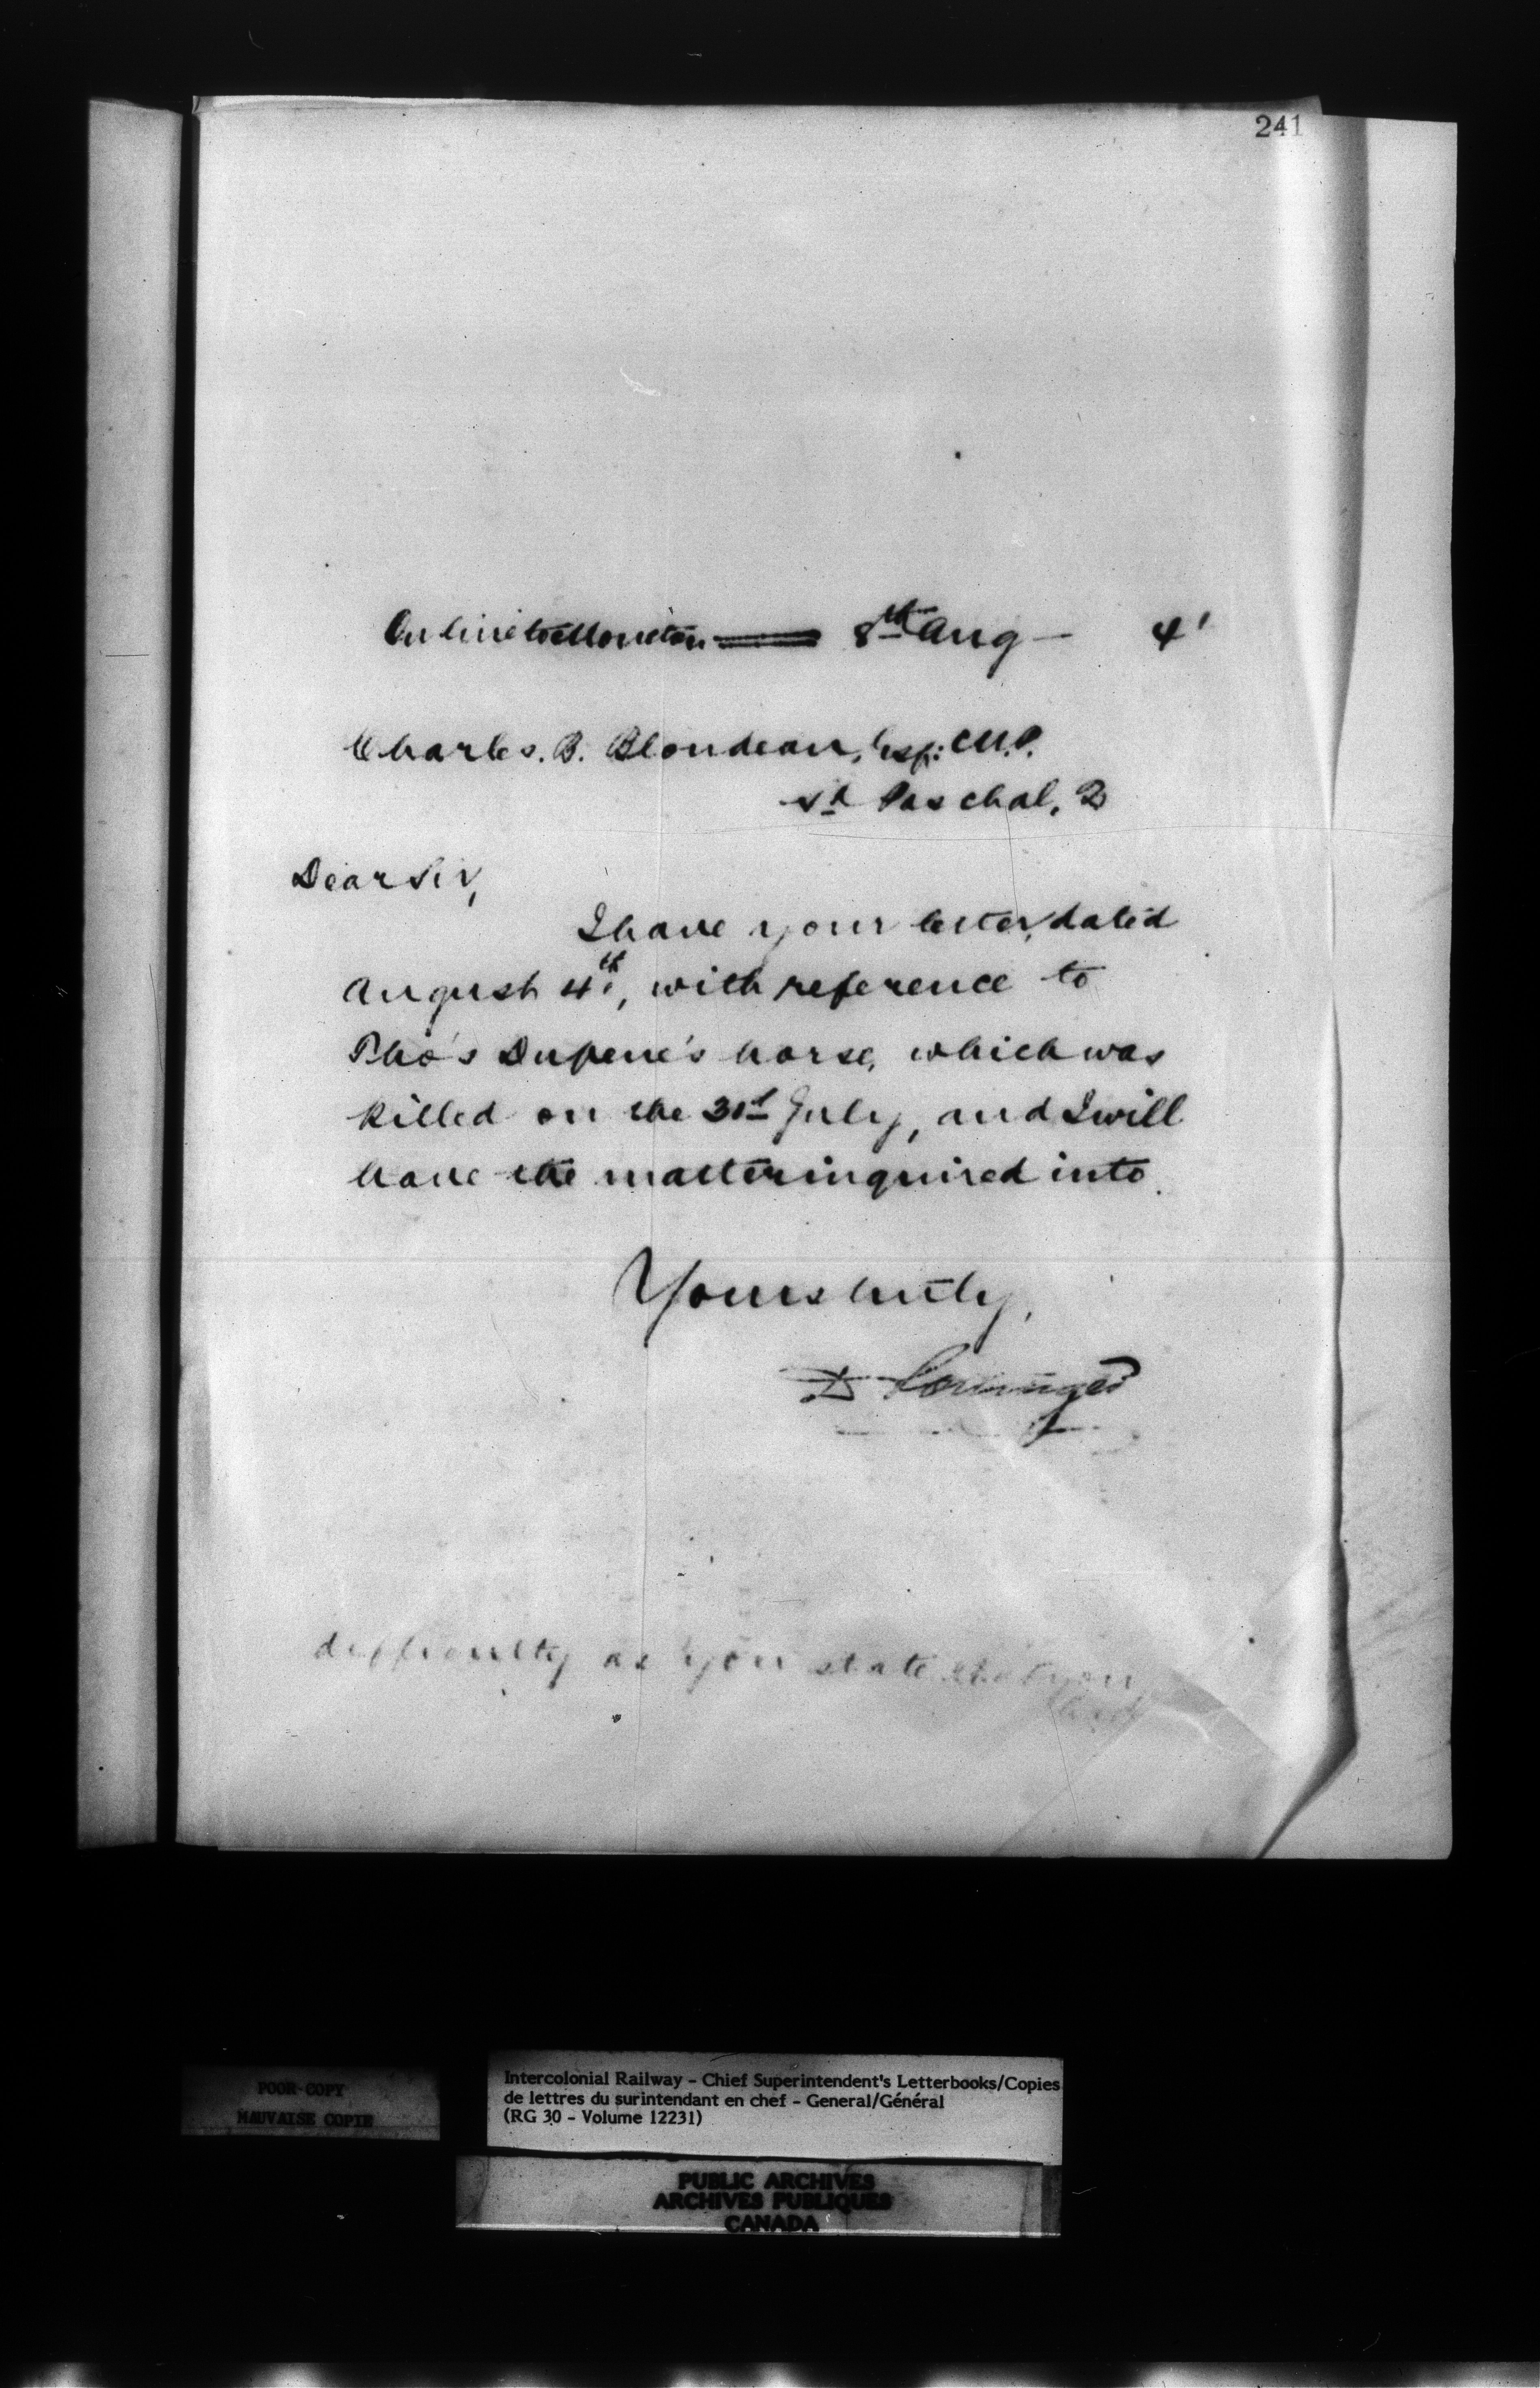 241
On line to Moncton 8th Aug — 4'
Charles. B. Blondeau, Esq: M.P.
St Paschal, Q
Dear Sir,
I have your letter, dated
August 4th, with reference to
Tho's Dupene's horse, which was
killed on the 31st July, and I will
have the matter inquired into.
Yours truly,
D Pottinger
difficulty as you state that you
had
POOR COPY
MAUVAISE COPIE
Intercolonial Railway – Chief Superintendent's Letterbooks/Copies
de lettres du surintendant en chef – General/Général
(RG 30 – Volume 12231)
PUBLIC ARCHIVES
ARCHIVES PUBLIQUES
CANADA